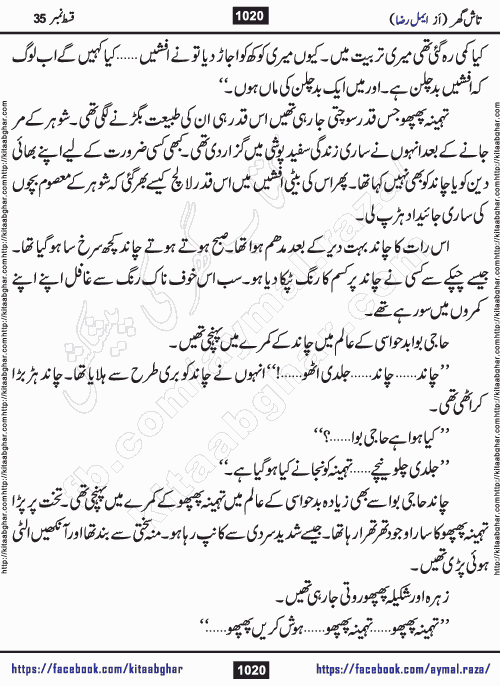 تاش گھر (از ایمل رضا) 1020 قسط نمبر 35
کیا کمی رہ گئی تھی میری تربیت میں۔ کیوں میری کوکھ کو اجاڑ دیا تو نے افشیں ...... کیا کہیں گے اب لوگ
کہ افشیں بدچلن ہے۔ اور میں ایک بدچلن کی ماں ہوں۔‘‘
تہمینہ پھپھو جس قدر سوچتی جا رہی تھیں اس قدر ہی ان کی طبیعت بگڑنے لگی تھی۔ شوہر کے مر
جانے کے بعد انہوں نے ساری زندگی سفید پوشی میں گزار دی تھی۔ کبھی کسی ضرورت کے لیے اپنے بھائی
دین کو یا چاند کو بھی نہیں کہا تھا۔ پھر اس کی بیٹی افشیں میں اس قدر لالچ کیسے بھر گئی کہ شوہر کے معصوم بچوں
کی ساری جائیداد ہڑپ لی۔
اس رات کا چاند بہت دیر کے بعد مدھم ہوا تھا۔ صبح ہوتے ہوتے چاند کچھ سرخ سا ہو گیا تھا۔
جیسے چپکے سے کسی نے چاند پر کسم کا رنگ ٹپکا دیا ہو۔ سب اس خوف ناک رنگ سے غافل اپنے اپنے
کمروں میں سو رہے تھے۔
حاجی بوا بدحواسی کے عالم میں چاند کے کمرے میں پہنچی تھیں۔
’’چاند ...... چاند ...... جلدی اٹھو ......!‘‘ انہوں نے چاند کو بری طرح سے ہلایا تھا۔ چاند ہڑبڑا
کر اٹھی تھی۔
’’کیا ہوا ہے حاجی بوا ......؟‘‘
’’جلدی چلو نیچے ...... تہمینہ کو نجانے کیا ہو گیا ہے۔‘‘
چاند حاجی بوا سے بھی زیادہ بدحواسی کے عالم میں تہمینہ پھپھو کے کمرے میں پہنچی تھی۔ تخت پر پڑا
تہمینہ پھپھو کا سارا وجود تھر تھرا رہا تھا۔ جیسے شدید سردی سے کانپ رہا ہو۔ منہ سختی سے بند تھا اور آنکھیں الٹی
ہوئی پڑی تھیں۔
زہرہ اور شکیلہ پھپھو روتی جا رہی تھیں۔
’’تہمینہ پھپھو ...... تہمینہ پھپھو ...... ہوش کریں پھپھو ......‘‘
https://facebook.com/kitaabghar 1020 https://facebook.com/aymal.raza/